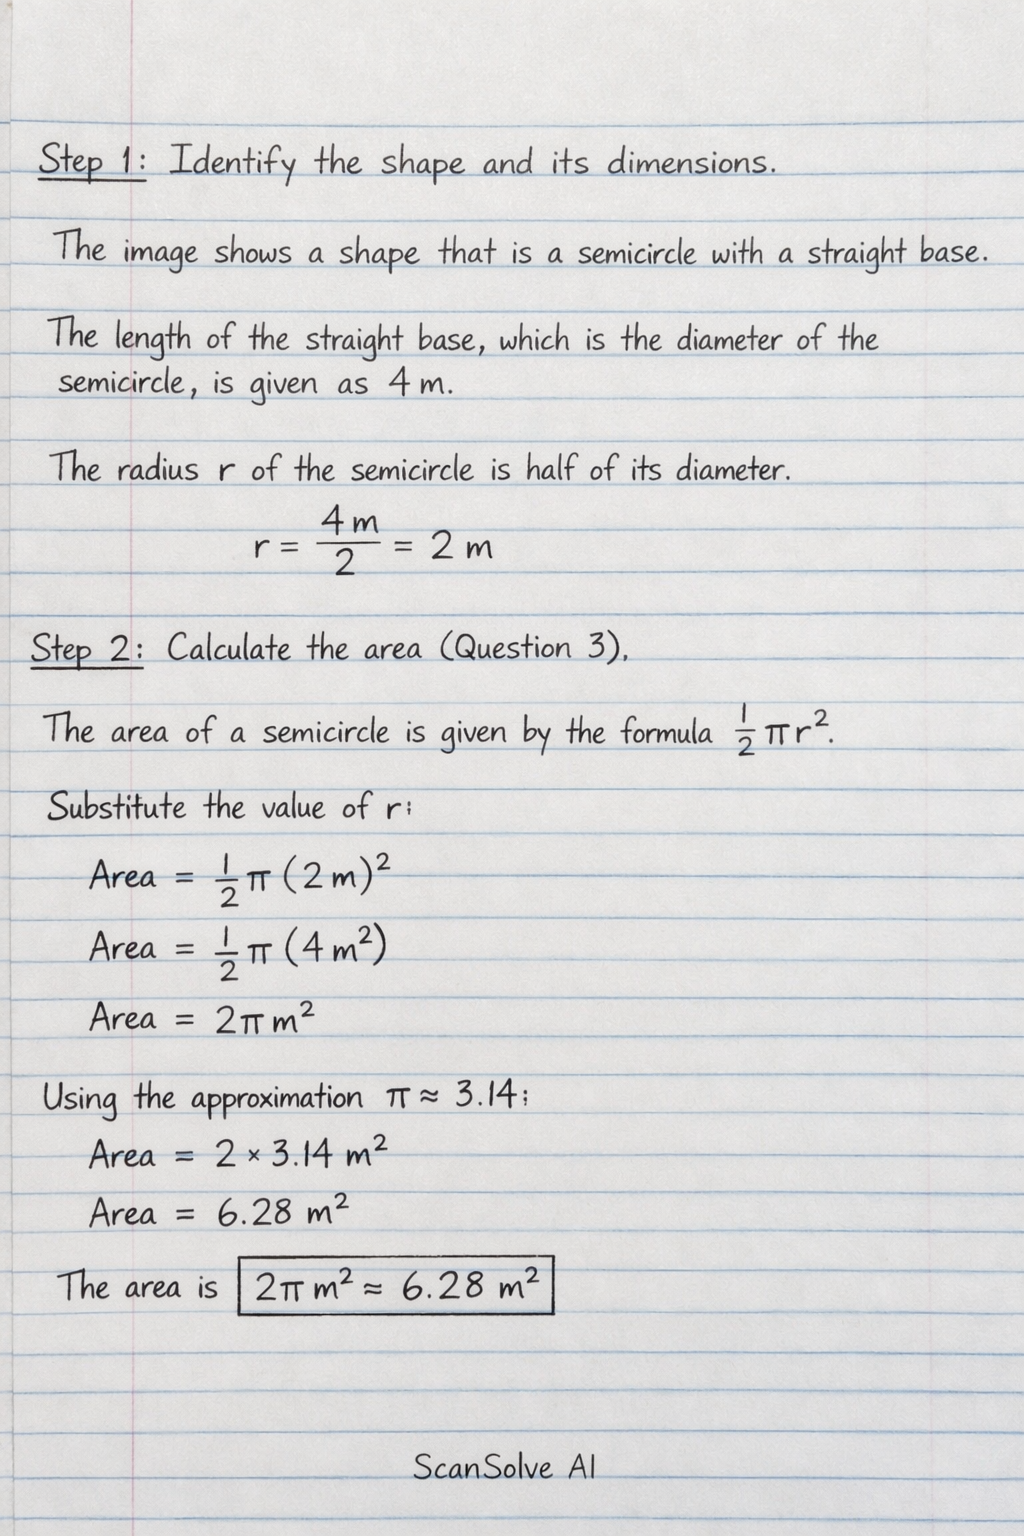 Step 1: Identify the shape and its dimensions.
The image shows a shape that is a semicircle with a straight base.
The length of the straight base, which is the diameter of the
semicircle, is given as 4 m.
The radius r of the semicircle is half of its diameter.
r = 4 m / 2 = 2 m
Step 2: Calculate the area (Question 3).
The area of a semicircle is given by the formula 1/2 πr².
Substitute the value of r:
Area = 1/2 π (2 m)²
Area = 1/2 π (4 m²)
Area = 2π m²
Using the approximation π ≈ 3.14:
Area = 2 × 3.14 m²
Area = 6.28 m²
The area is 2π m² ≈ 6.28 m²
ScanSolve AI